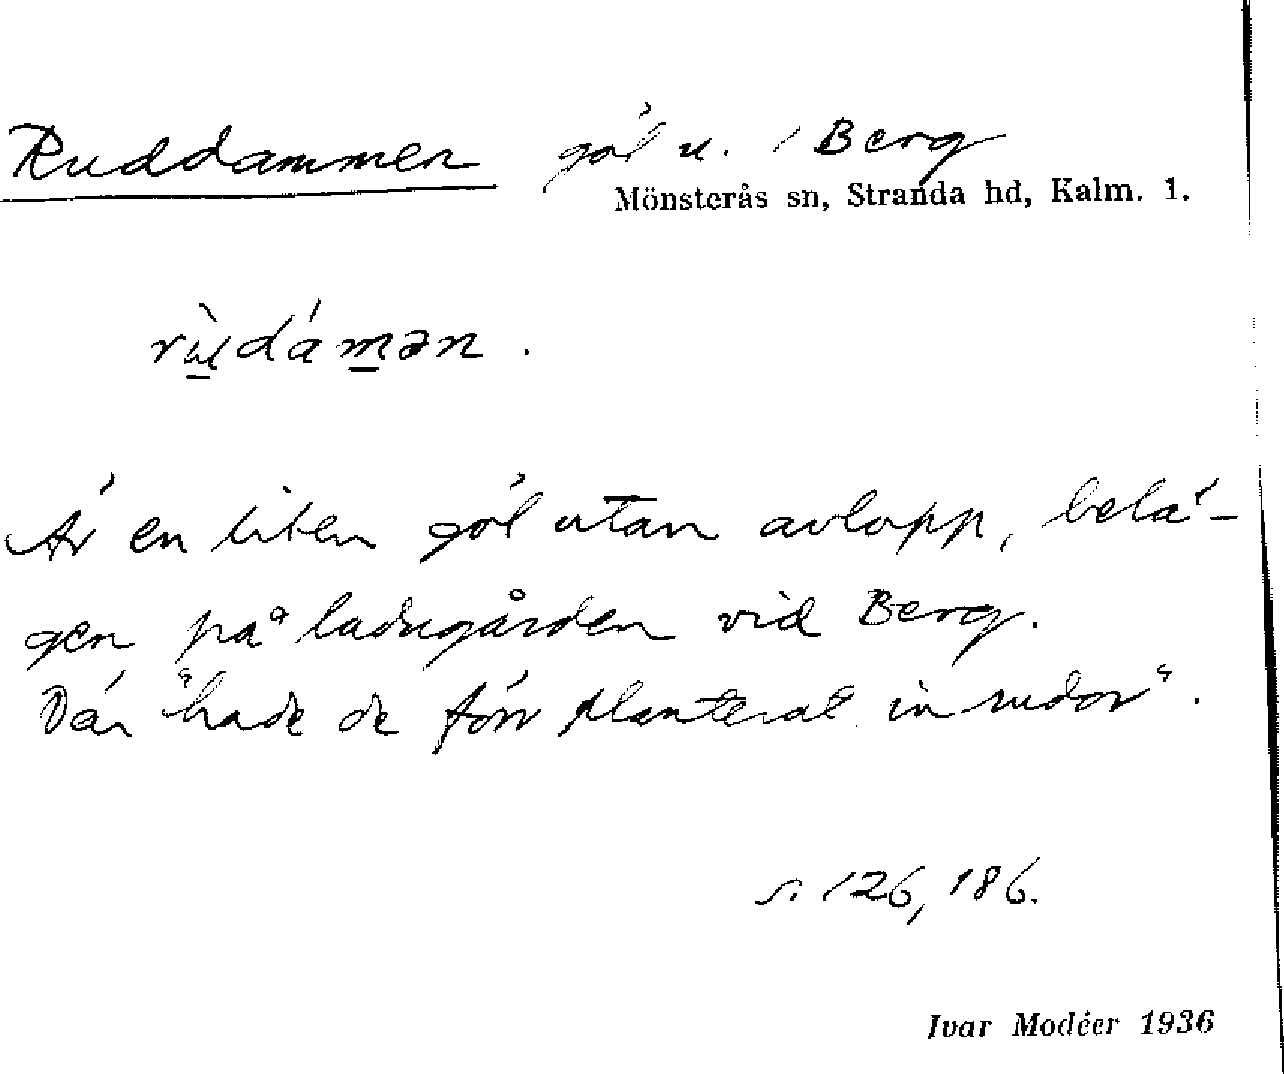 Ruddammen göl u. / Berg
Mönsterås sn, Stranda hd, Kalm. 1.
rù̱dáma̱n.
Är en liten göl utan avlopp, belä-
gen på ladugården vid Berg.
Där "hade de förr planterat in rudor".
s. 126, 186.
Ivar Modéer 1936